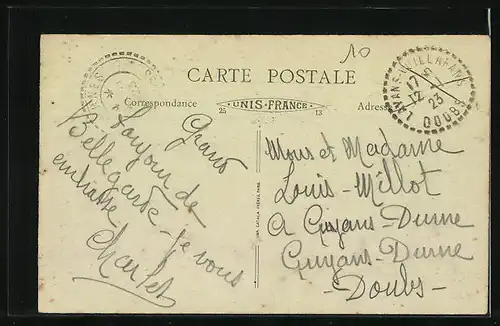 10
CARTE POSTALE
Correspondance
UNIS-FRANCE
25
13
Adresse
VILLAFANS
17
12
23
DOUBS
Grand
bonjour de
Bellegarde - je vous
embrasse
Charles
Mons et Madame
Louis - Millot
A Guyans-Durne
Guyans-Durne
- Doubs -